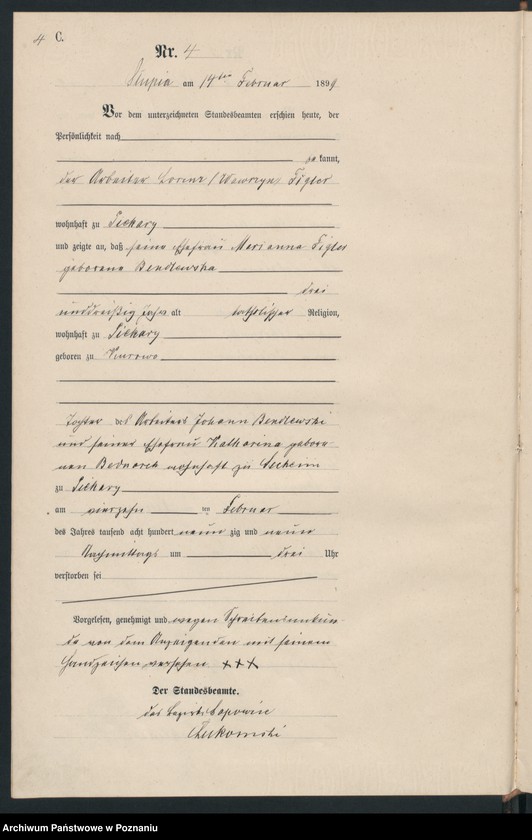 4 C.
Nr. 4
Slupia am 14ten Februar 1899
Vor dem unterzeichneten Standesbeamten erschien heute, der
Persönlichkeit nach
kannt,
der Arbeiter Lorenz (Wawrzyn) Figler
wohnhaft zu Piekary
und zeigte an, daß seine Ehefrau Marianna Figler
geborene Bendlewska
drei
unddreißig Jahre alt katholischer Religion,
wohnhaft zu Piekary
geboren zu
Tochter des Arbeiters Johann Bendlewski
und seiner Ehefrau Katharina gebore-
nen Bednarek wohnhaft zu
zu Piekary
am vierzehn ten Februar
des Jahres tausend acht hundert neun zig und neun
Nachmittags um drei Uhr
verstorben sei
Vorgelesen, genehmigt und wegen Schreibensunkun-
de von dem Anzeigenden mit seinem
Handzeichen versehen +++
Der Standesbeamte.
des Bezirks